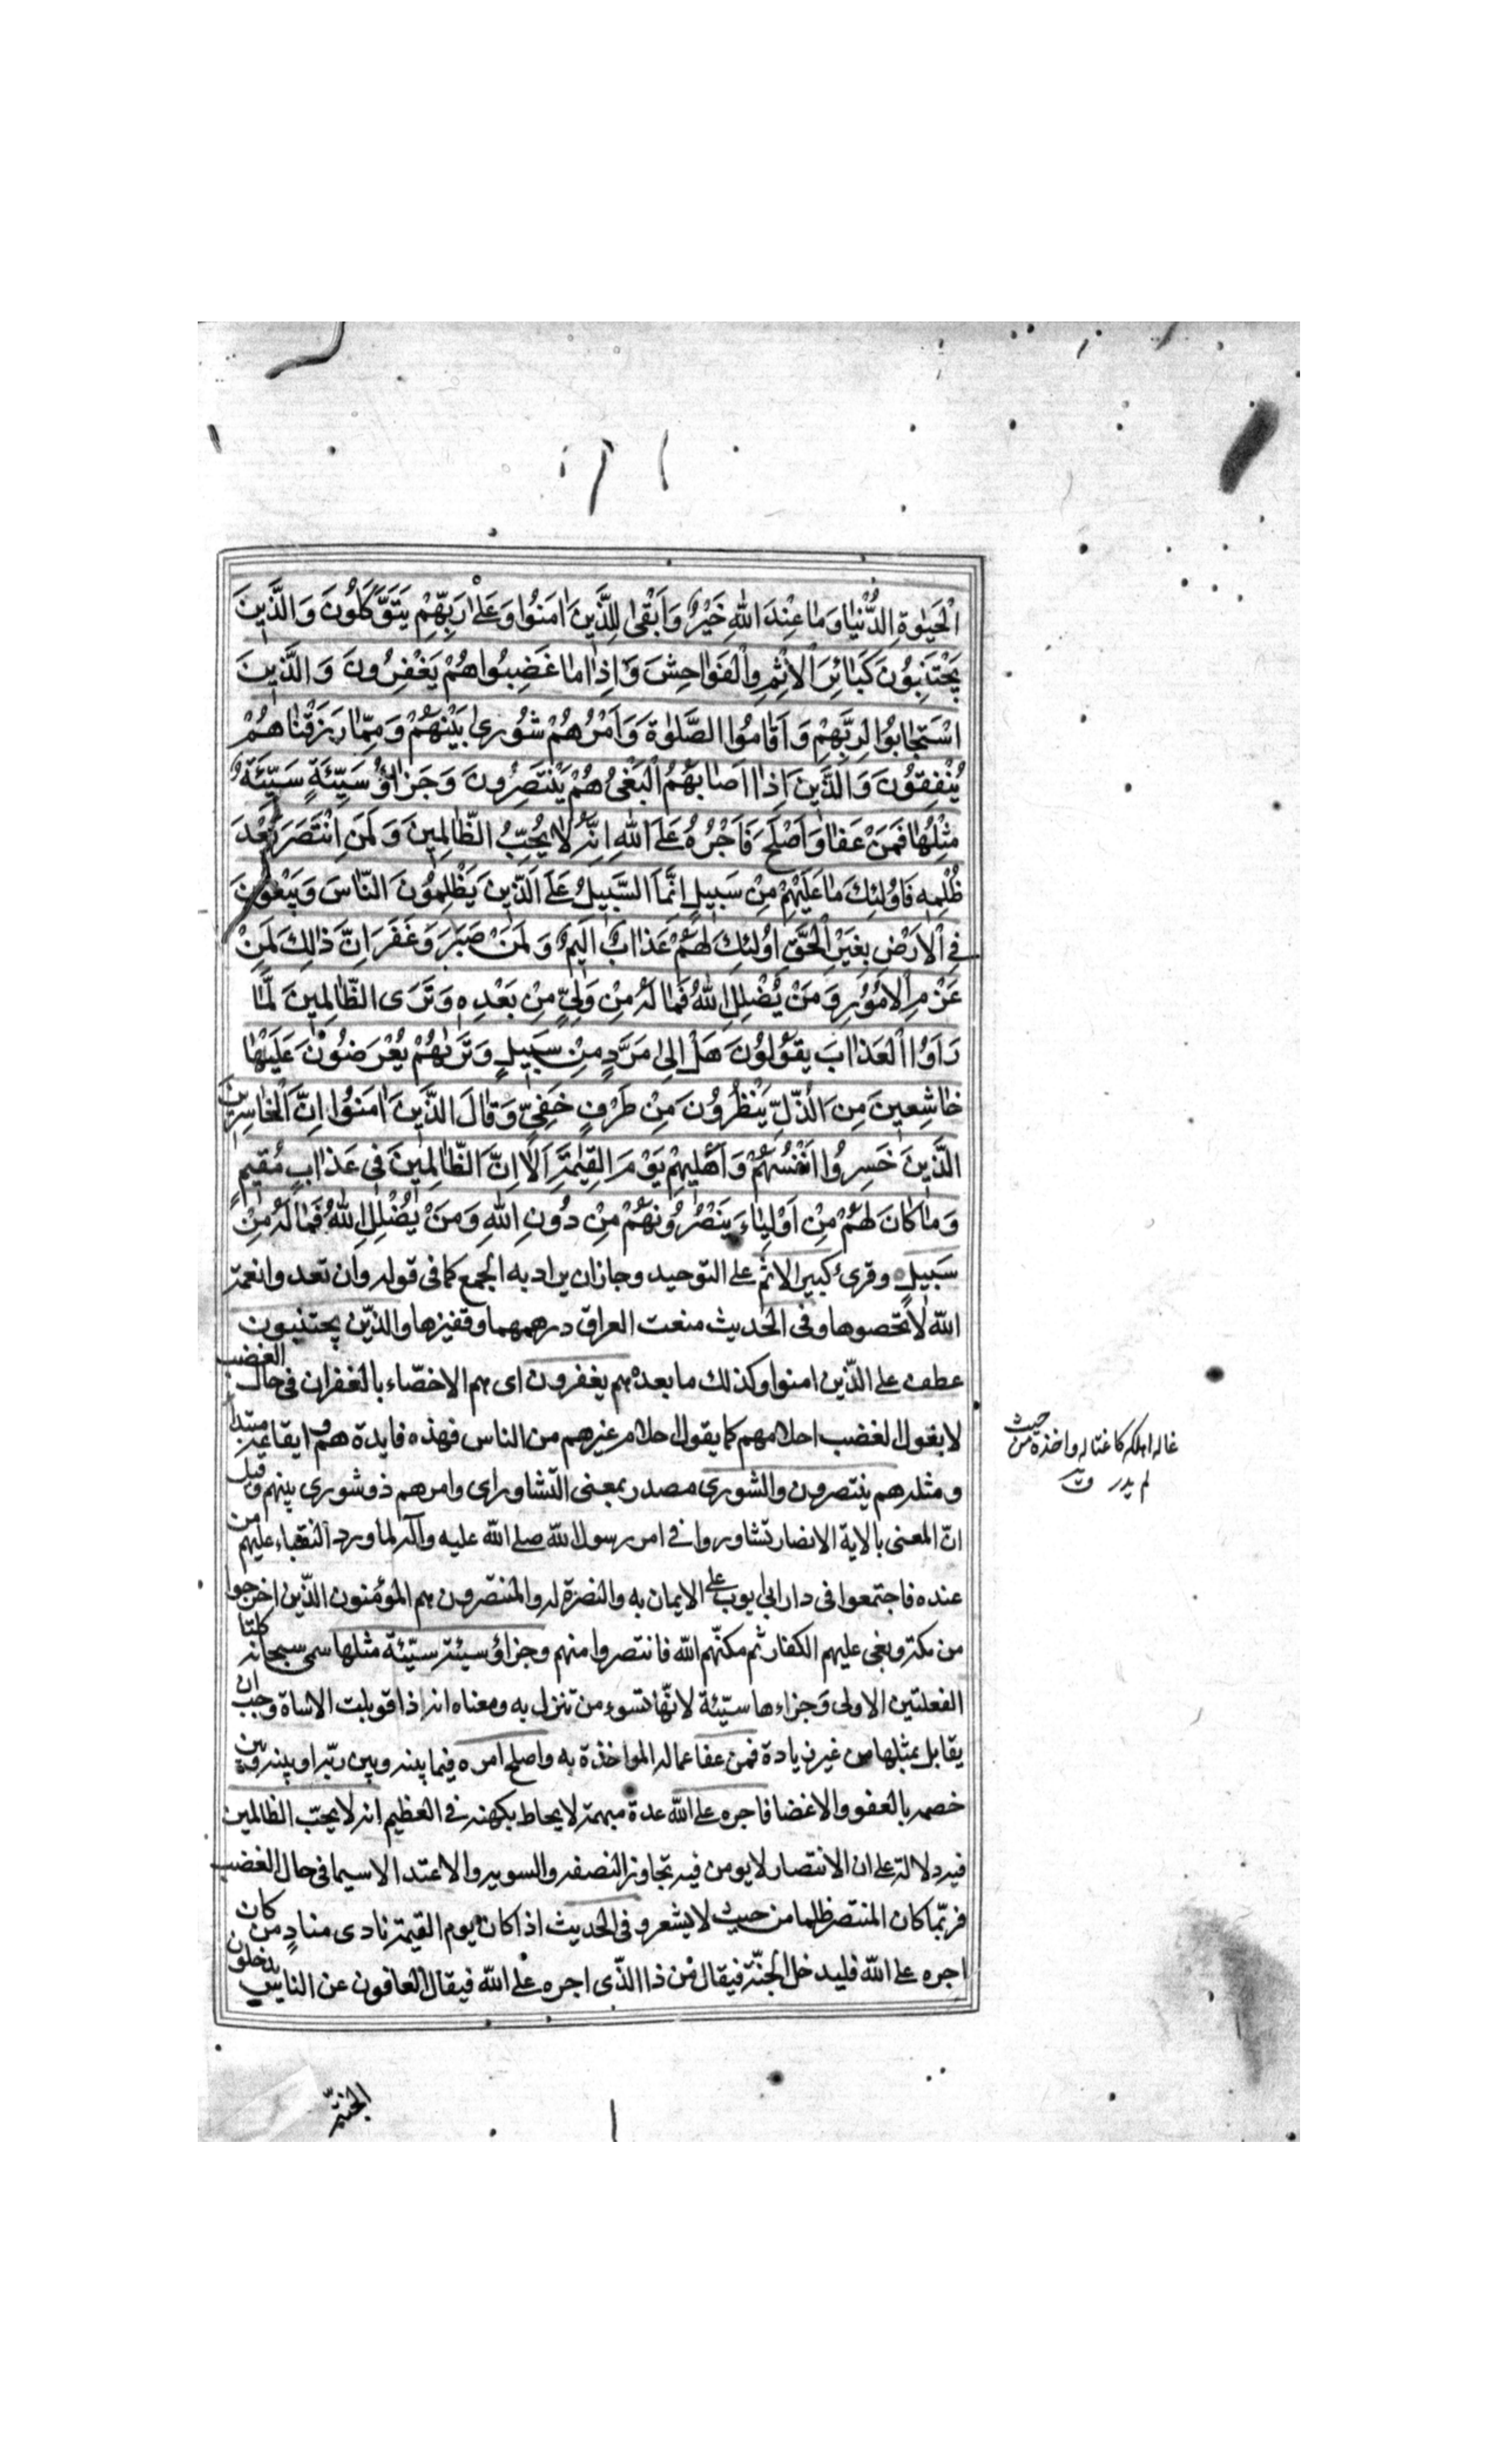 الْحَيٰوةِ الدُّنْيٰا وَمٰا عِنْدَ اللّٰهِ خَيْرٌ وَاَبْقٰى لِلَّذِينَ اٰمَنُوا وَعَلٰى رَبِّهِمْ يَتَوَكَّلُونَ وَالَّذِينَ
يَجْتَنِبُونَ كَبٰائِرَ الْاِثْمِ وَالْفَوٰاحِشَ وَاِذٰا مٰا غَضِبُوا هُمْ يَغْفِرُونَ وَالَّذِينَ
اسْتَجٰابُوا لِرَبِّهِمْ وَاَقٰامُوا الصَّلٰوةَ وَاَمْرُهُمْ شُورىٰ بَيْنَهُمْ وَمِمّٰا رَزَقْنٰاهُمْ
يُنْفِقُونَ وَالَّذِينَ اِذٰا اَصٰابَهُمُ الْبَغْىُ هُمْ يَنْتَصِرُونَ وَجَزٰاؤُ سَيِّئَةٍ سَيِّئَةٌ
مِثْلُهٰا فَمَنْ عَفٰا وَاَصْلَحَ فَاَجْرُهُ عَلَى اللّٰهِ اِنَّهُ لٰا يُحِبُّ الظّٰالِمِينَ وَلَمَنِ انْتَصَرَ بَعْدَ
ظُلْمِهِ فَاُولٰئِكَ مٰا عَلَيْهِمْ مِنْ سَبِيلٍ اِنَّمَا السَّبِيلُ عَلَى الَّذِينَ يَظْلِمُونَ النّٰاسَ وَيَبْغُونَ
فِي الْاَرْضِ بِغَيْرِ الْحَقِّ اُولٰئِكَ لَهُمْ عَذٰابٌ اَلِيمٌ وَلَمَنْ صَبَرَ وَغَفَرَ اِنَّ ذٰلِكَ لَمِنْ
عَزْمِ الْاُمُورِ وَمَنْ يُضْلِلِ اللّٰهُ فَمٰا لَهُ مِنْ وَلِيٍّ مِنْ بَعْدِهِ وَتَرَى الظّٰالِمِينَ لَمّٰا
رَاَوُا الْعَذٰابَ يَقُولُونَ هَلْ اِلىٰ مَرَدٍّ مِنْ سَبِيلٍ وَتَرٰيهُمْ يُعْرَضُونَ عَلَيْهٰا
خٰاشِعِينَ مِنَ الذُّلِّ يَنْظُرُونَ مِنْ طَرْفٍ خَفِيٍّ وَقٰالَ الَّذِينَ اٰمَنُوا اِنَّ الْخٰاسِرِينَ
الَّذِينَ خَسِرُوا اَنْفُسَهُمْ وَاَهْلِيهِمْ يَوْمَ الْقِيٰمَةِ اَلٰا اِنَّ الظّٰالِمِينَ فِي عَذٰابٍ مُقِيمٍ
وَمٰا كٰانَ لَهُمْ مِنْ اَوْلِيٰاءَ يَنْصُرُونَهُمْ مِنْ دُونِ اللّٰهِ وَمَنْ يُضْلِلِ اللّٰهُ فَمٰا لَهُ مِنْ
سَبِيلٍ وقرئ كبير الاثم على التوحيد وجاز ان يراد به الجمع كما فى قوله وان تعدوا نعمة
الله لا تحصوها وفى الحديث منعت العراق درهمها وقفيزها والذين يجتنبون
عطف على الذين امنوا وكذلك ما بعده هم يغفرون اى هم الاخصاء بالغفران فى حال الغضب
لا يغول الغضب احلامهم كما يغول احلام غيرهم من الناس فهذه فايدة هم وايقاعه مبتدأ
ومثله هم ينتصرون والشورى مصدر بمعنى التشاور اى وامرهم ذو شورى بينهم وقيل
انّ المعنى بالاية الانصار تشاوروا فى امر رسول الله صلى الله عليه وآله لما ورد النقباء عليهم من
عنده فاجتمعوا فى دار ابى ايوب على الايمان به والنصرة له والمنتصرون هم المؤمنون الذين اخرجوا
من مكة وبغى عليهم الكفار ثم مكنّهم الله فانتصروا منهم وجزاؤ سيئة سيّئة مثلها سمى سبحانه كلتا
الفعلتين الاولى وجزاءها سيّئة لانّها تسوء من تنزل به ومعناه انه اذا قوبلت الاساة وجب ان
يقابل بمثلها من غير زيادة فمن عفا عما له المواخذة به واصلح امره فيما بينه وبين ربّه او بينه وبين
خصمه بالعفو والاغضا فاجره على الله عدة مبهمة لا يحاط بكهنه فى العظيم انه لا يحبّ الظالمين
فيه دلالة على ان الانتصار لا يومن فيه تجاوز النصفه والسويه والاعتدا لا سيما فى حال الغضب
فربّما كان المنتصر ظلما من حيث لا يشعر وفى الحديث اذا كان يوم القيمة نادى مناد من كان
اجره على الله فليدخل الجنّة فيقال من ذا الذّى اجره على الله فيقال العافون عن الناس يدخلون
الجنّة
غاله اهلكه كاغتاله واخذه من حيث
لم يدر